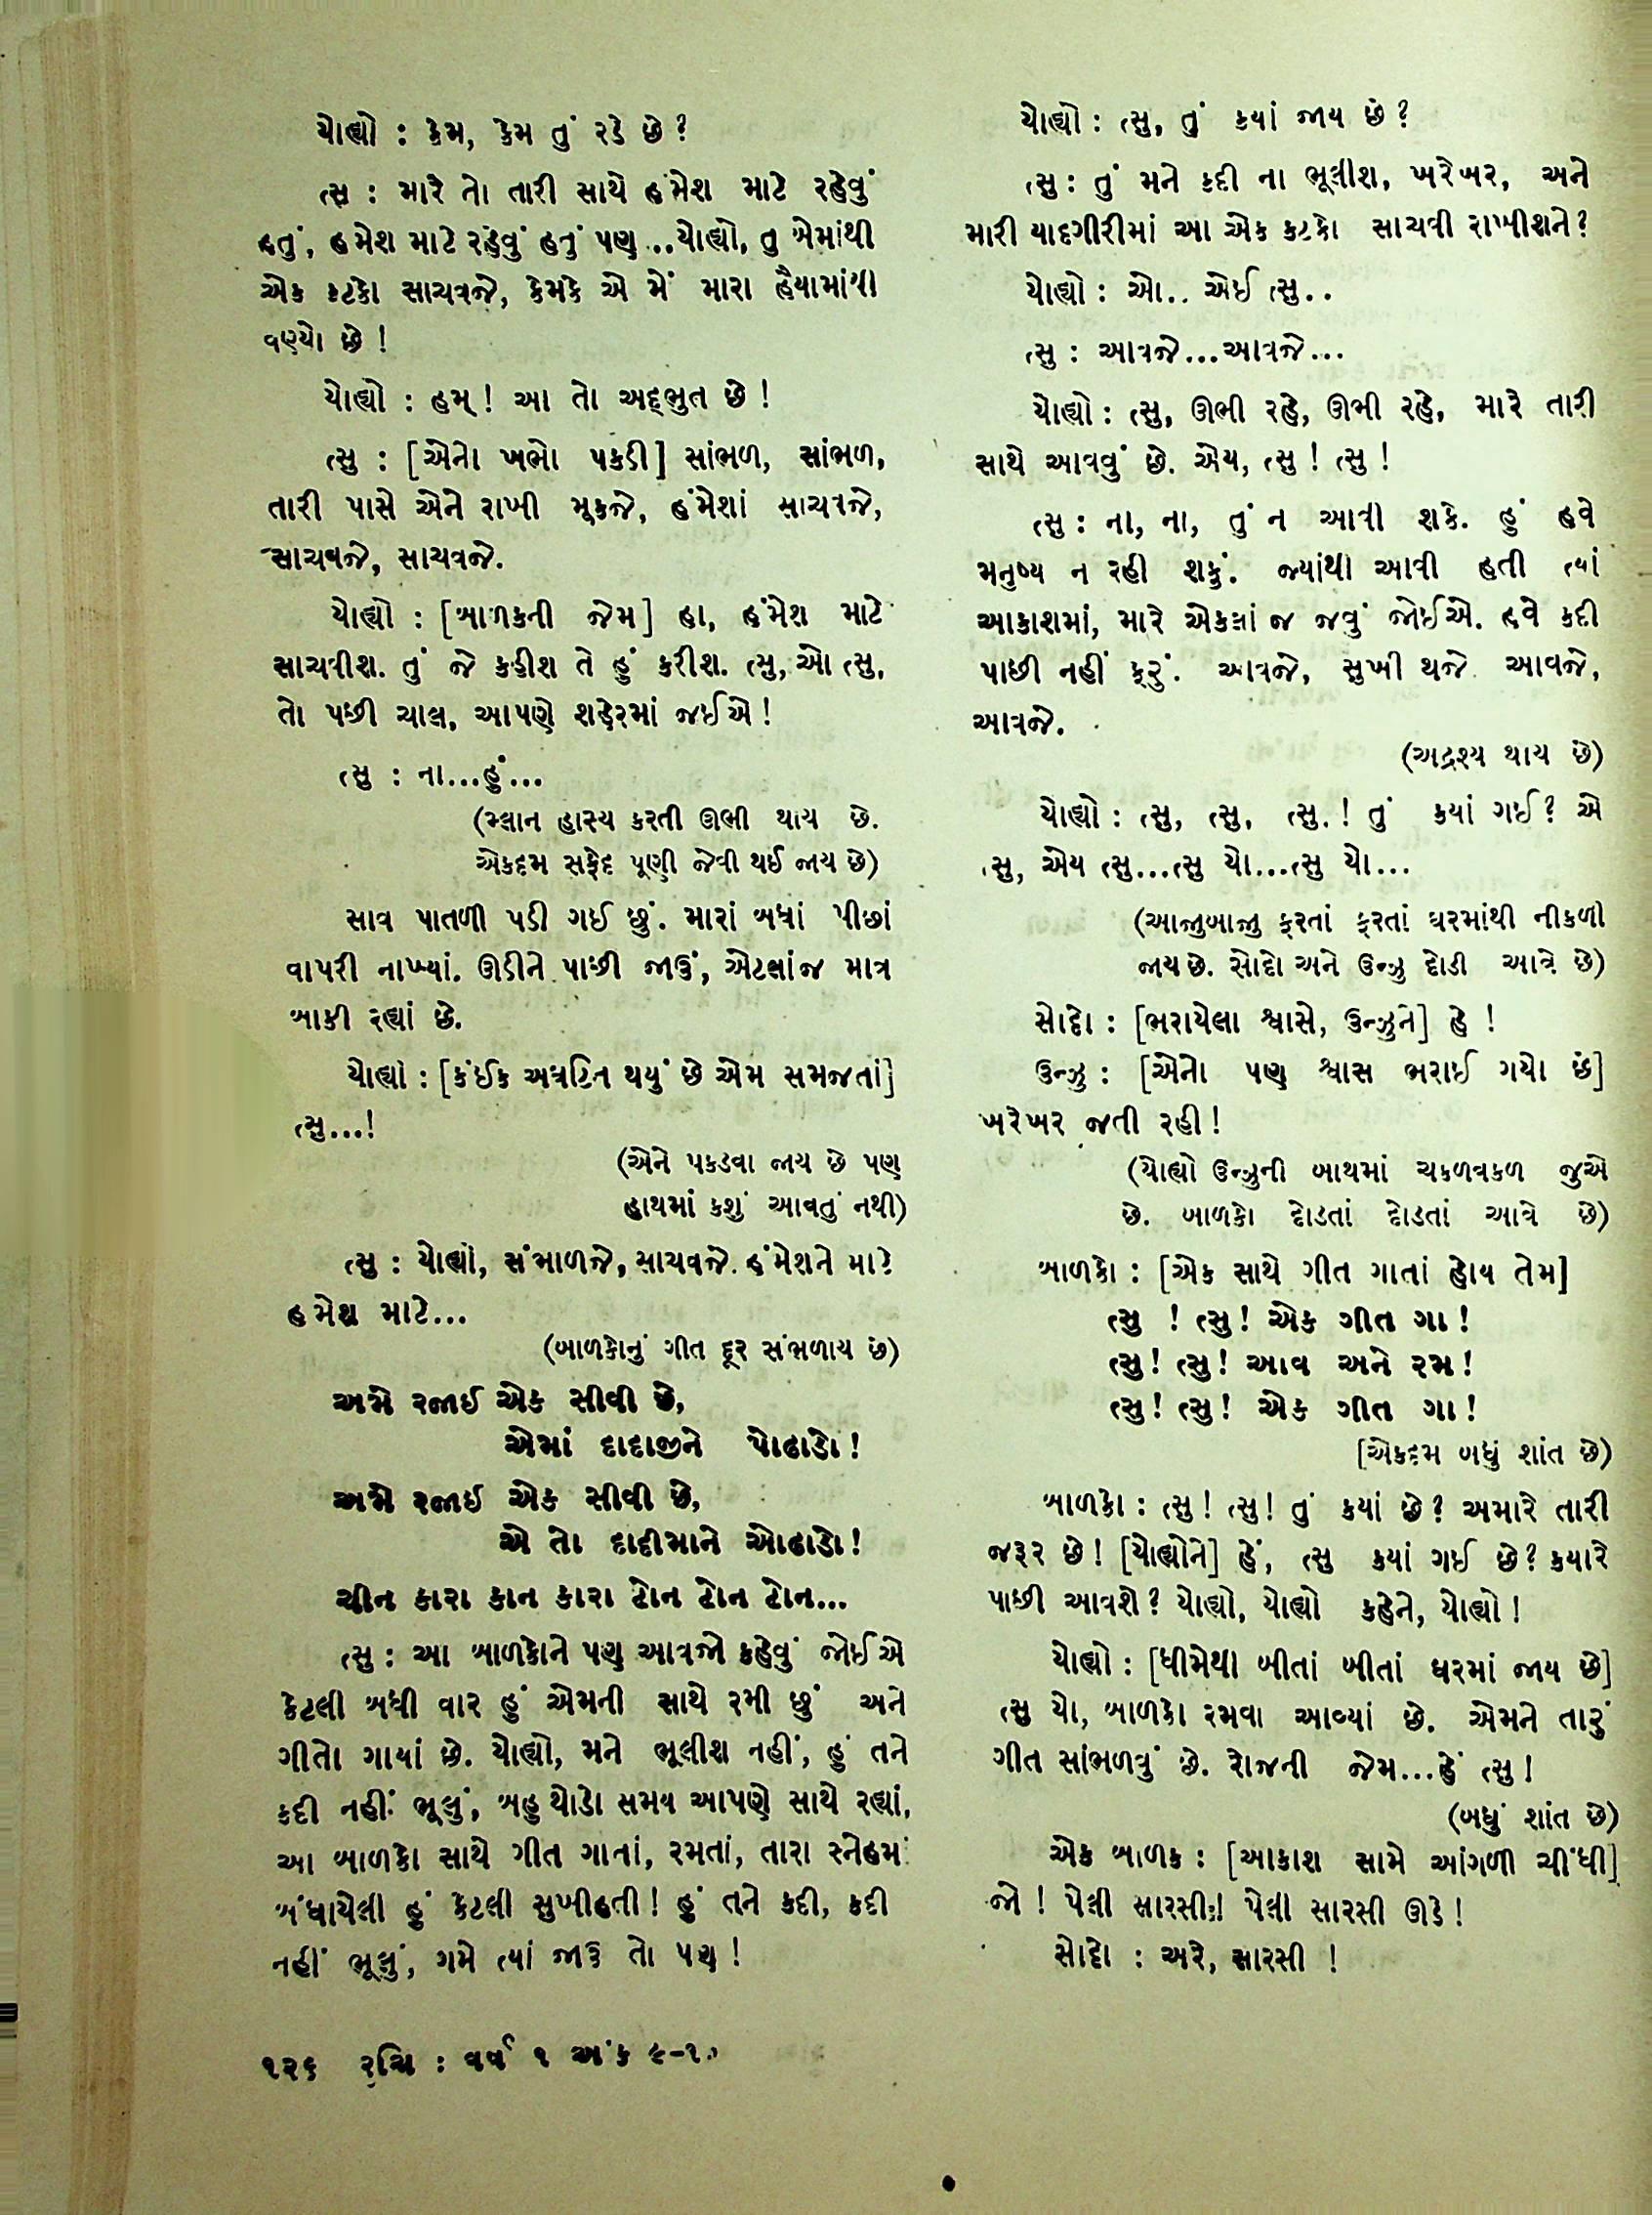 યોહ્યો : કેમ, કેમ તું રડે છે?
ત્સુ : મારે તો તારી સાથે હંમેશ માટે રહેવું
હતું, હમેશ માટે રહેવું હતું પણ...યોહ્યો, તુ એમાંથી
એક કટકો સાચવજે, કેમકે એ મેં મારા હૈયામાંથી
વણ્યો છે !
યોહ્યો : હમ્ ! આ તો અદ્ભુત છે !
ત્સુ : [એનો ખભો પકડી] સાંભળ, સાંભળ,
તારી પાસે એને રાખી મૂકજે, હંમેશાં સાચવજે,
સાચવજે, સાચવજે.
યોહ્યો : [બાળકની જેમ] હા, હંમેશ માટે
સાચવીશ. તું જે કહીશ તે હું કરીશ. ત્સુ, ઓ ત્સુ,
તો પછી ચાલ, આપણે શહેરમાં જઈએ !
ત્સુ : ના...હું...
(મ્લાન હાસ્ય કરતી ઊભી થાય છે.
એકદમ સફેદ પૂણી જેવી થઈ જાય છે)
સાવ પાતળી પડી ગઈ છું. મારાં બધાં પીછાં
વાપરી નાખ્યાં. ઊડીને પાછી જાઉં, એટલાંજ માત્ર
બાકી રહ્યાં છે.
યોહ્યો : [કંઈક અઘટિત થયું છે એમ સમજતાં]
ત્સુ...!
(એને પકડવા જાય છે પણ
હાથમાં કશું આવતું નથી)
ત્સુ : યોહ્યો, સંભાળજે, સાચવજે. હંમેશને માટે
હમેશ માટે...
(બાળકોનું ગીત દૂર સંભળાય છે)
અમે રજાઈ એક સીવી છે,
એમાં દાદાજીને પોઢાડો !
અમે રજાઈ એક સીવી છે,
એ તો દાદીમાને ઓઢાડો !
ચીન કારા કાન કારા ટોન ટોન ટોન...
ત્સુ : આ બાળકોને પણ આવજો કહેવું જોઈએ
કેટલી બધી વાર હું એમની સાથે રમી છું અને
ગીતો ગાયાં છે. યોહ્યો, મને ભૂલીશ નહીં, હું તને
કદી નહીં ભૂલું, બહુ થોડો સમય આપણે સાથે રહ્યાં,
આ બાળકો સાથે ગીત ગાતાં, રમતાં, તારા સ્નેહમાં
બંધાયેલી હું કેટલી સુખીહતી ! હું તને કદી, કદી
નહીં ભૂલું, ગમે ત્યાં જાઉં તો પણ !
૧૨૬ રુચિ : વર્ષ ૧ અંક ૯-૧૦
યોહ્યો : ત્સુ, તું કયાં જાય છે?
ત્સુ : તું મને કદી ના ભૂલીશ, ખરેખર, અને
મારી યાદગીરીમાં આ એક કટકો સાચવી રાખીશને?
યોહ્યો : ઓ.. એઈ ત્સુ..
ત્સુ : આવજે...આવજે...
યોહ્યો : ત્સુ, ઊભી રહે, ઊભી રહે, મારે તારી
સાથે આવવું છે. એય, ત્સુ ! ત્સુ !
ત્સુ : ના, ના, તું ન આવી શકે. હું હવે
મનુષ્ય ન રહી શકું. જ્યાંથી આવી હતી ત્યાં
આકાશમાં, મારે એકલાં જ જવું જોઈએ. હવે કદી
પાછી નહીં ફરું. આવજે, સુખી થજે. આવજે,
આવજે.
(અદ્રશ્ય થાય છે)
યોહ્યો : ત્સુ, ત્સુ, ત્સુ.! તું કયાં ગઈ? એ
ત્સુ, એય ત્સુ...ત્સુ યો...ત્સુ યો...
(આજુબાજુ ફરતાં ફરતાં ઘરમાંથી નીકળી
જાય છે. સોદો અને ઉન્ઝુ દોડી આવે છે)
સોદો : [ભરાયેલા શ્વાસે, ઉન્ઝુને] હે !
ઉન્ઝુ : [એનો પણ શ્વાસ ભરાઈ ગયો છે]
ખરેખર જતી રહી !
(યોહ્યો ઉન્ઝુની બાથમાં ચકળવકળ જુએ
છે. બાળકો દોડતાં દોડતાં આવે છે)
બાળકો : [એક સાથે ગીત ગાતાં હોય તેમ]
ત્સુ ! ત્સુ ! એક ગીત ગા !
ત્સુ ! ત્સુ ! આવ અને રમ !
ત્સુ ! ત્સુ ! એક ગીત ગા !
[એકદમ બધું શાંત છે)
બાળકો : ત્સુ ! ત્સુ ! તું કયાં છે? અમારે તારી
જરૂર છે ! [યોહ્યોને] હેં, ત્સુ કયાં ગઈ છે? કયારે
પાછી આવશે? યોહ્યો, યોહ્યો કહેને, યોહ્યો !
યોહ્યો : [ધીમેથી બીતાં બીતાં ઘરમાં જાય છે]
ત્સુ યો, બાળકો રમવા આવ્યાં છે. એમને તારું
ગીત સાંભળવું છે. રોજની જેમ...હેં ત્સુ !
(બધું શાંત છે)
એક બાળક : [આકાશ સામે આંગળી ચીંધી]
જો ! પેલી સારસી ! પેલી સારસી ઊડે !
સોદો : અરે, સારસી !